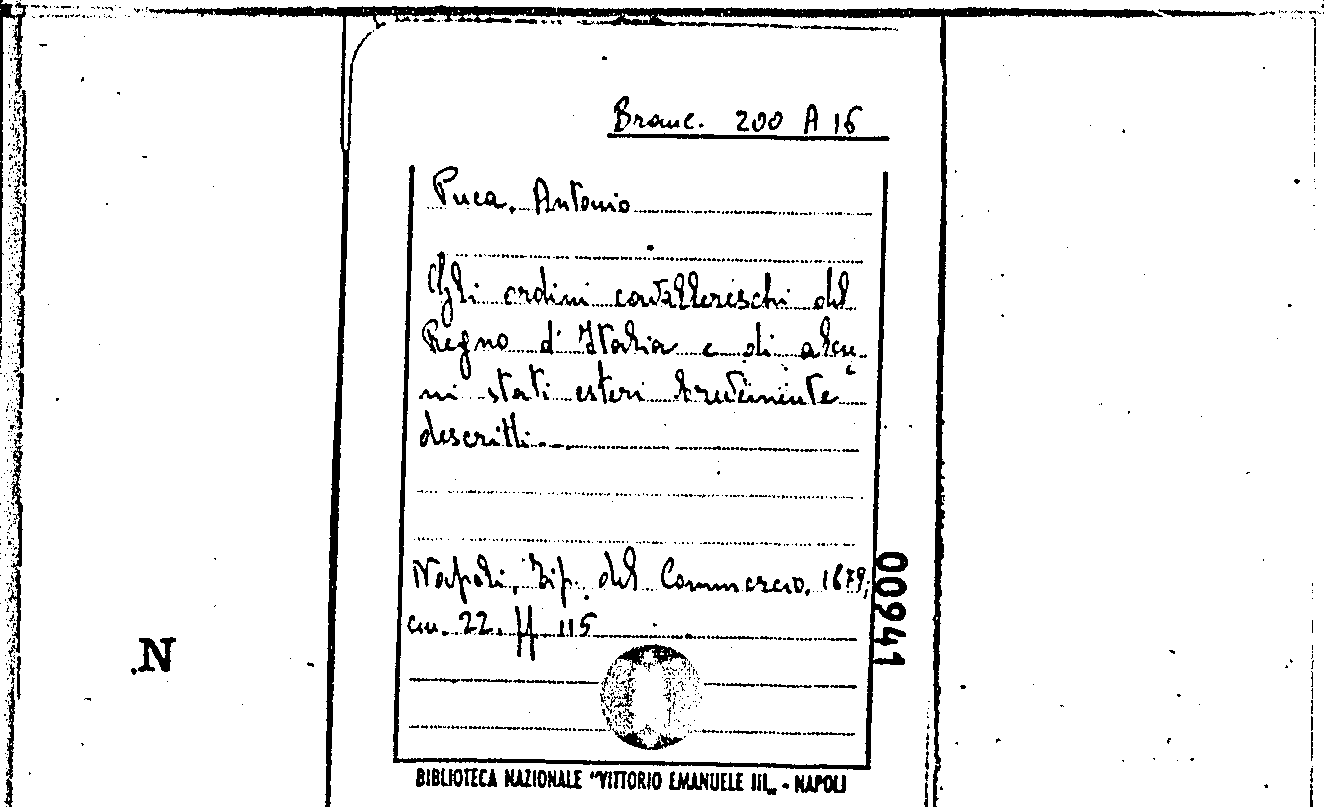 Branc. 200 A 16
Puca, Antonio
Gli ordini cavallereschi del
Regno d'Italia e di alcu-
ni stati esteri brevemente
descritti.
Napoli, Tip. del Commercio, 1879,
cm. 22. pp 115
00941
N
BIBLIOTECA NAZIONALE "VITTORIO EMANUELE III„ - NAPOLI